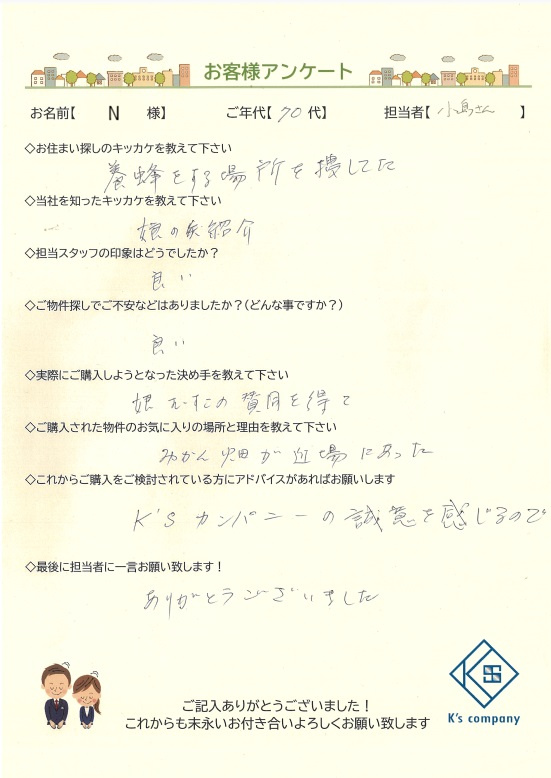 お客様アンケート
お名前【 N 様】 ご年代【 70 代】 担当者【 小島さん 】
◇お住まい探しのキッカケを教えて下さい
養蜂をする場所を捜してた
◇当社を知ったキッカケを教えて下さい
娘の 紹介
◇担当スタッフの印象はどうでしたか？
良い
◇ご物件探しでご不安などはありましたか？（どんな事ですか？）
良い
◇実際にご購入しようとなった決め手を教えて下さい
娘 むすこの賛同を得て
◇ご購入された物件のお気に入りの場所と理由を教えて下さい
みかん畑が近場にあった
◇これからご購入をご検討されている方にアドバイスがあればお願いします
K'S カンパニーの誠意を感じるので
◇最後に担当者に一言お願い致します！
ありがとうございました
ご記入ありがとうございました！
これからも末永いお付き合いよろしくお願い致します
K's company